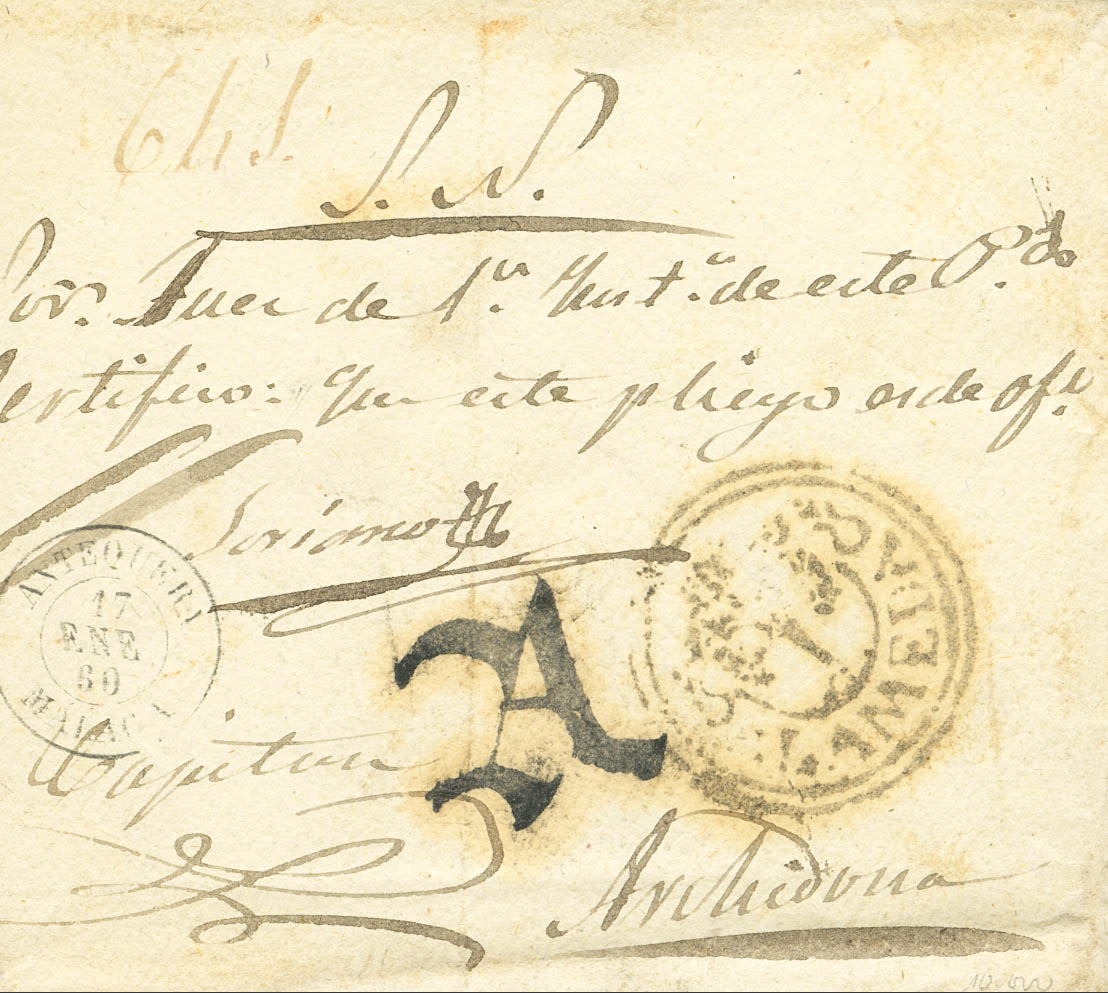 S. N.
Sor. Juez de 1ª Inst.ª de este P.do
Certifico: Que este pliego es de ofº.
Soriano
ANTEQUERA
17
ENE
60
MALAGA
A
Capitan
Archidona